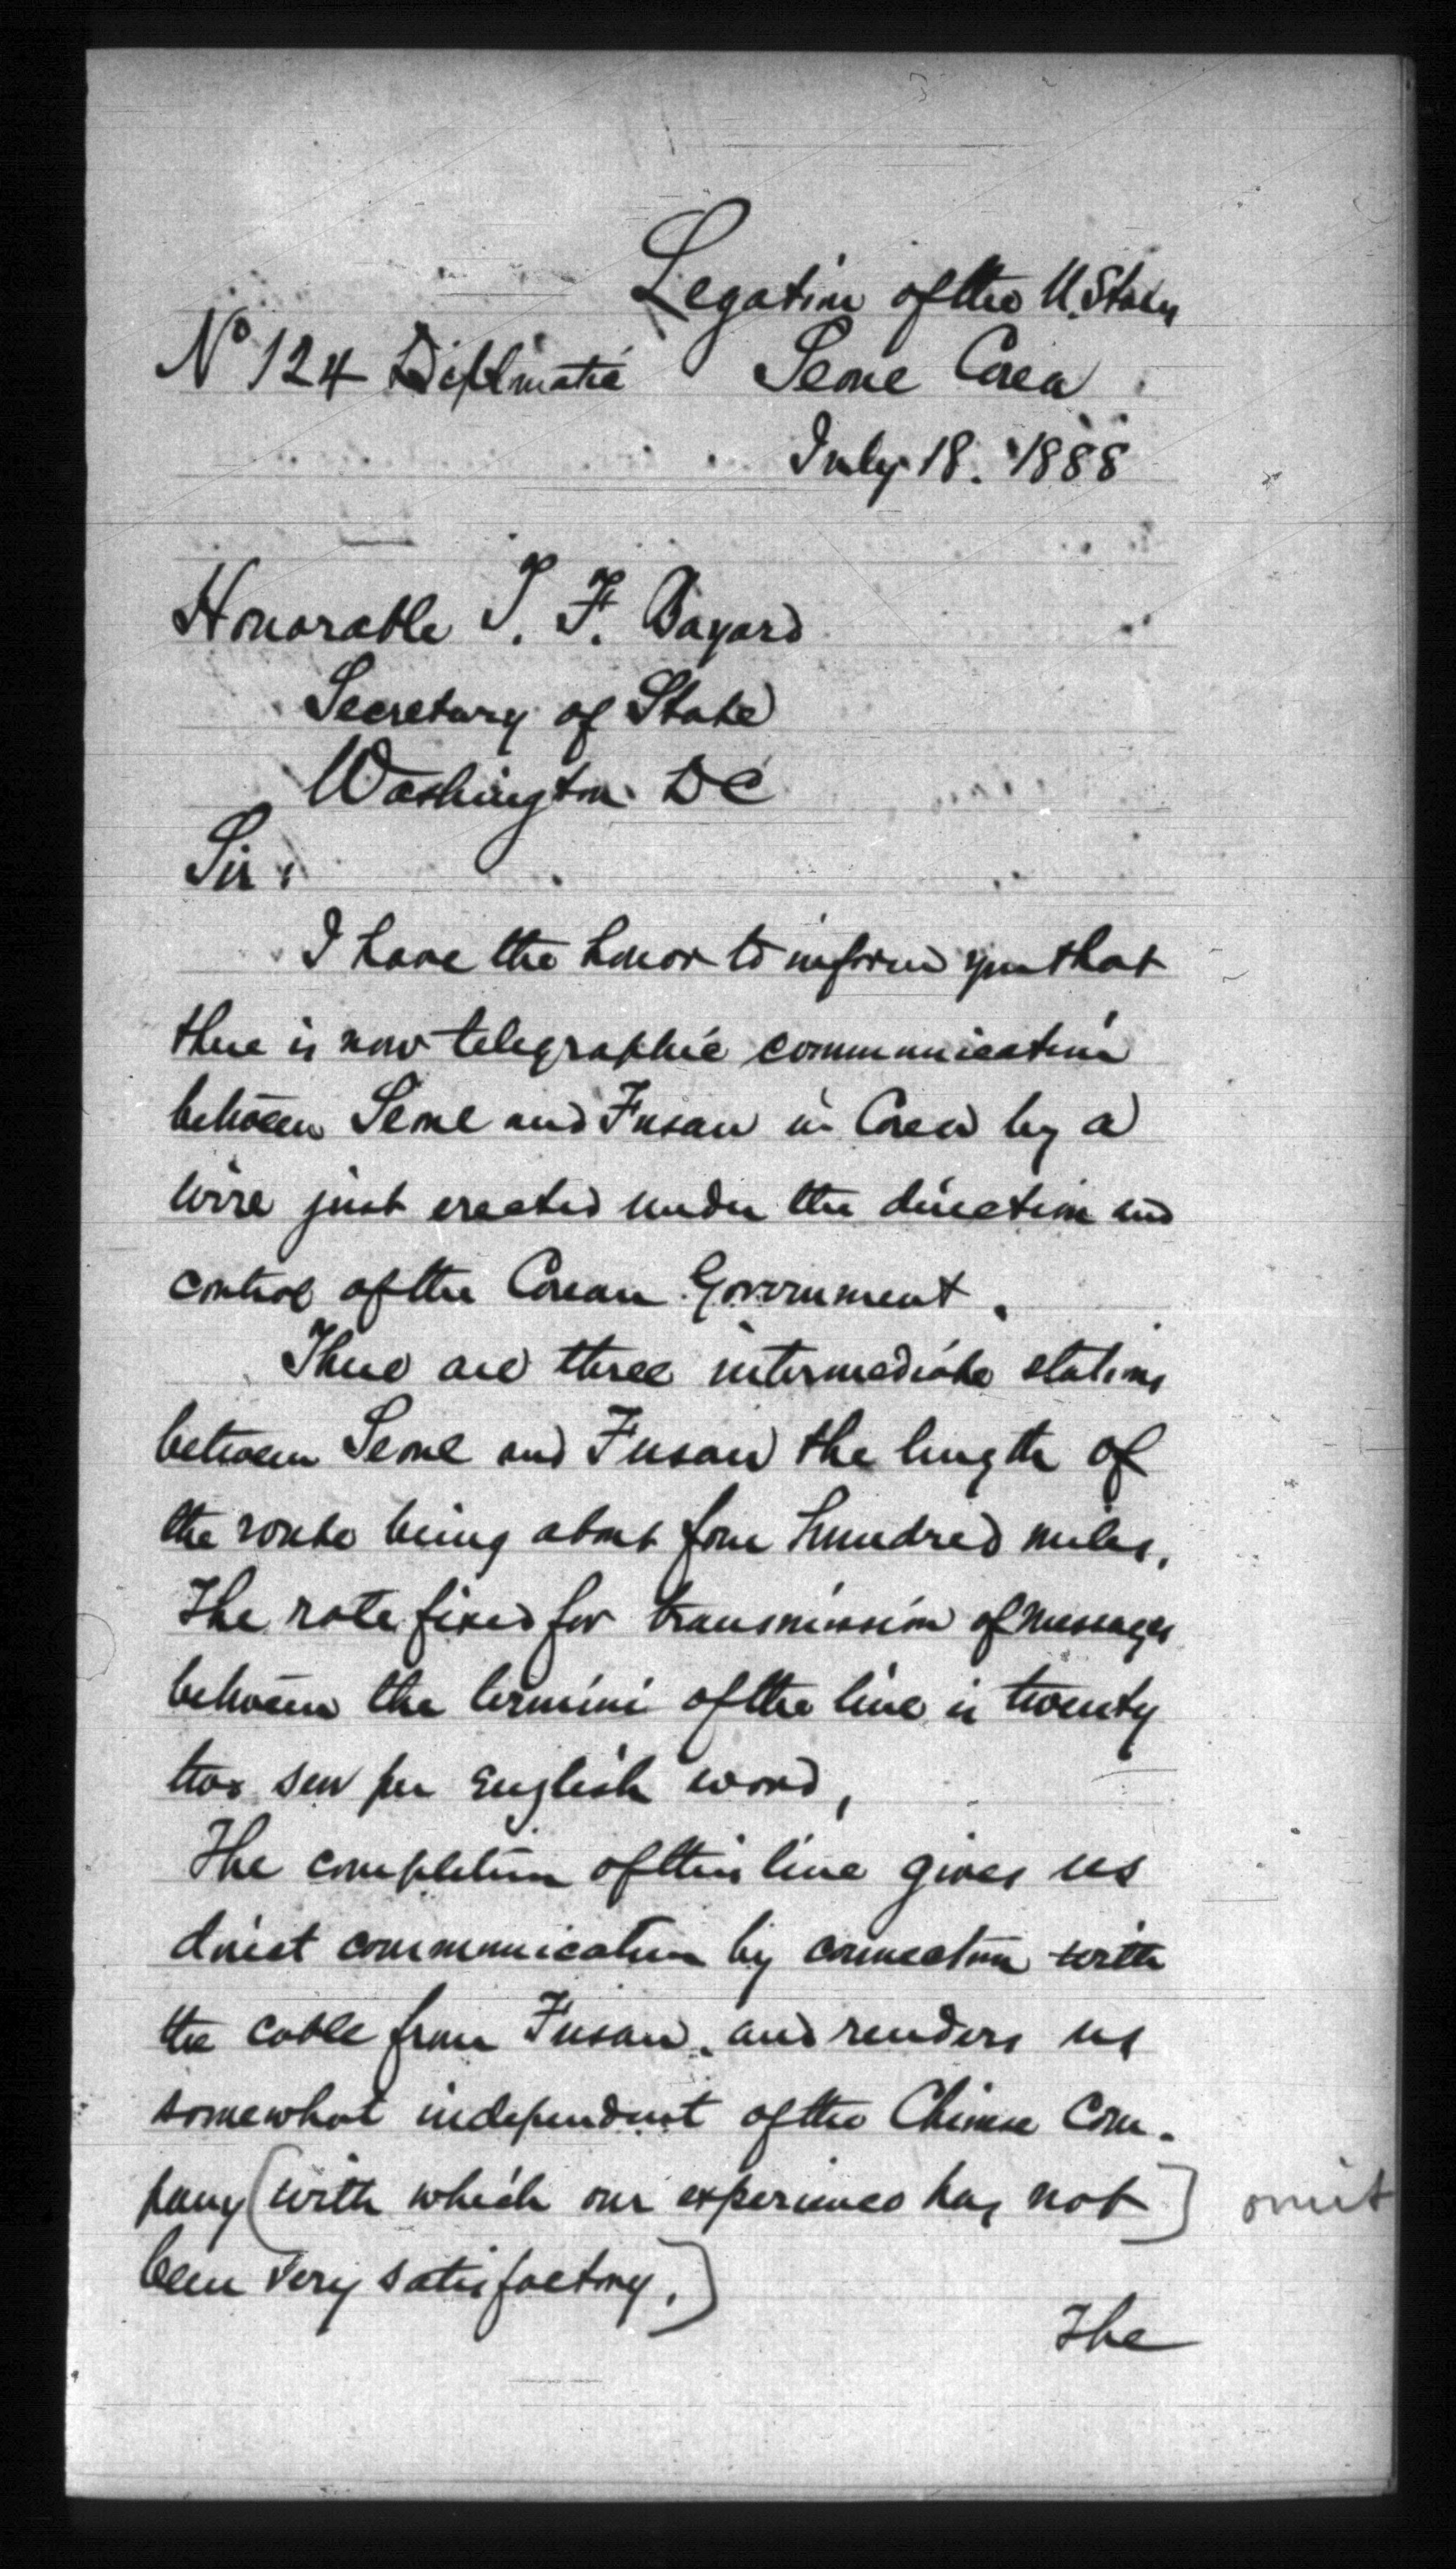 Legation of the U. States
No 124 Diplmatic Seoul Corea
July 18. 1888
Honorable T. F. Bayard
Secretary of State
Washington DC
Sir:
I have the honor to inform you that
there is now telegraphic communication
between Seoul and Fusan in Corea by a
wire just erected under the direction and
control of the Corean Government.
There are three intermediate stations
between Seoul and Fusan the length of
the route being about four hundred miles.
The rate fixed for transmission of messages
between the termini of the line is twenty
two sen per English word,
The completion of this line gives us
direct communication by connection with
the cable from Fusan, and renders us
somewhat independent of the Chinese Com-
pany (with which our experience has not] omit
been very satisfactory.]
The